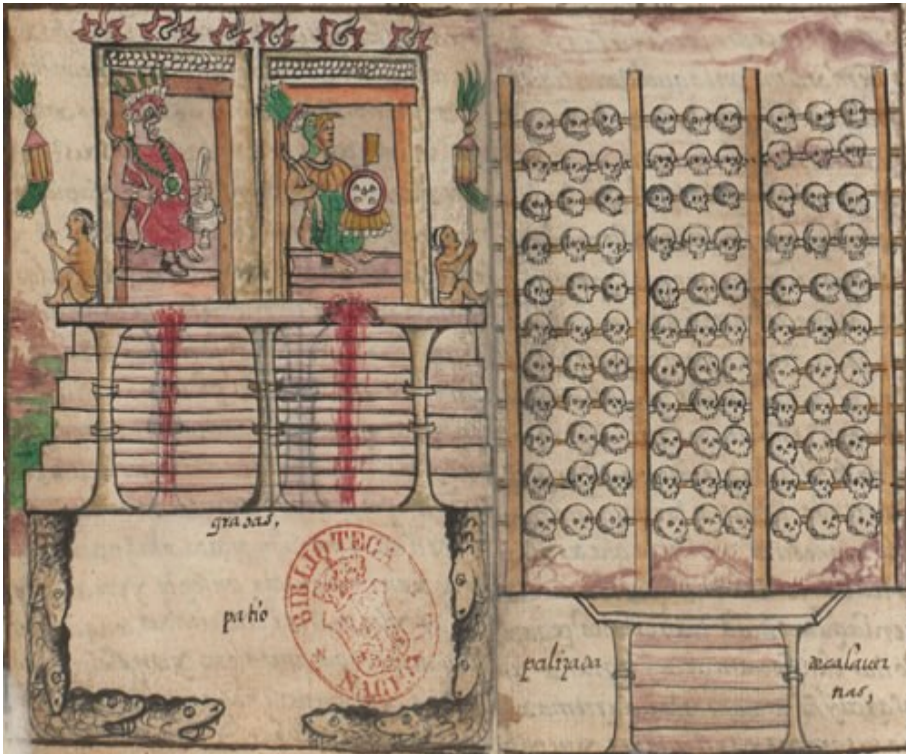 gradas,
patio
BIBLIOTECA
NACION
palizada
de calaver
nas,